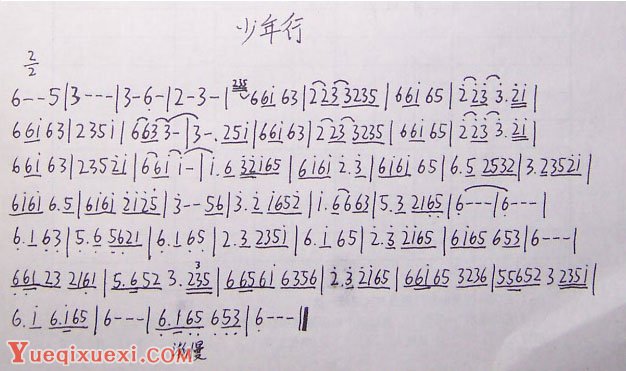 少年行
2/2
6--5|3---|3-6-|2-3-|235 661 63|223 3235|661 65|223 3.21|
661 63|2351|6633-|3-.251|661 63|223 3235|661 65|223 3.21|
661 63|23521|661 1-|1.6 32165|6161 2.3|6161 65|6.5 2532|3.23521|
6161 6.5|6161 2125|3--56|3.2 1652|1.6663|5.3 2165|6---|6---|
6.1 63|5.6 5621|6.1 65|2.3 2351|6.1 65|2.3 2165|6165 653|6---|
661 23 2161|5.652 3.235 3|66561 6356|2.3 2165|66165 3236|55652 3 2351|
6.1 6.165|6---|6.165 653|6---‖
渐慢
Yueqixuexi.com